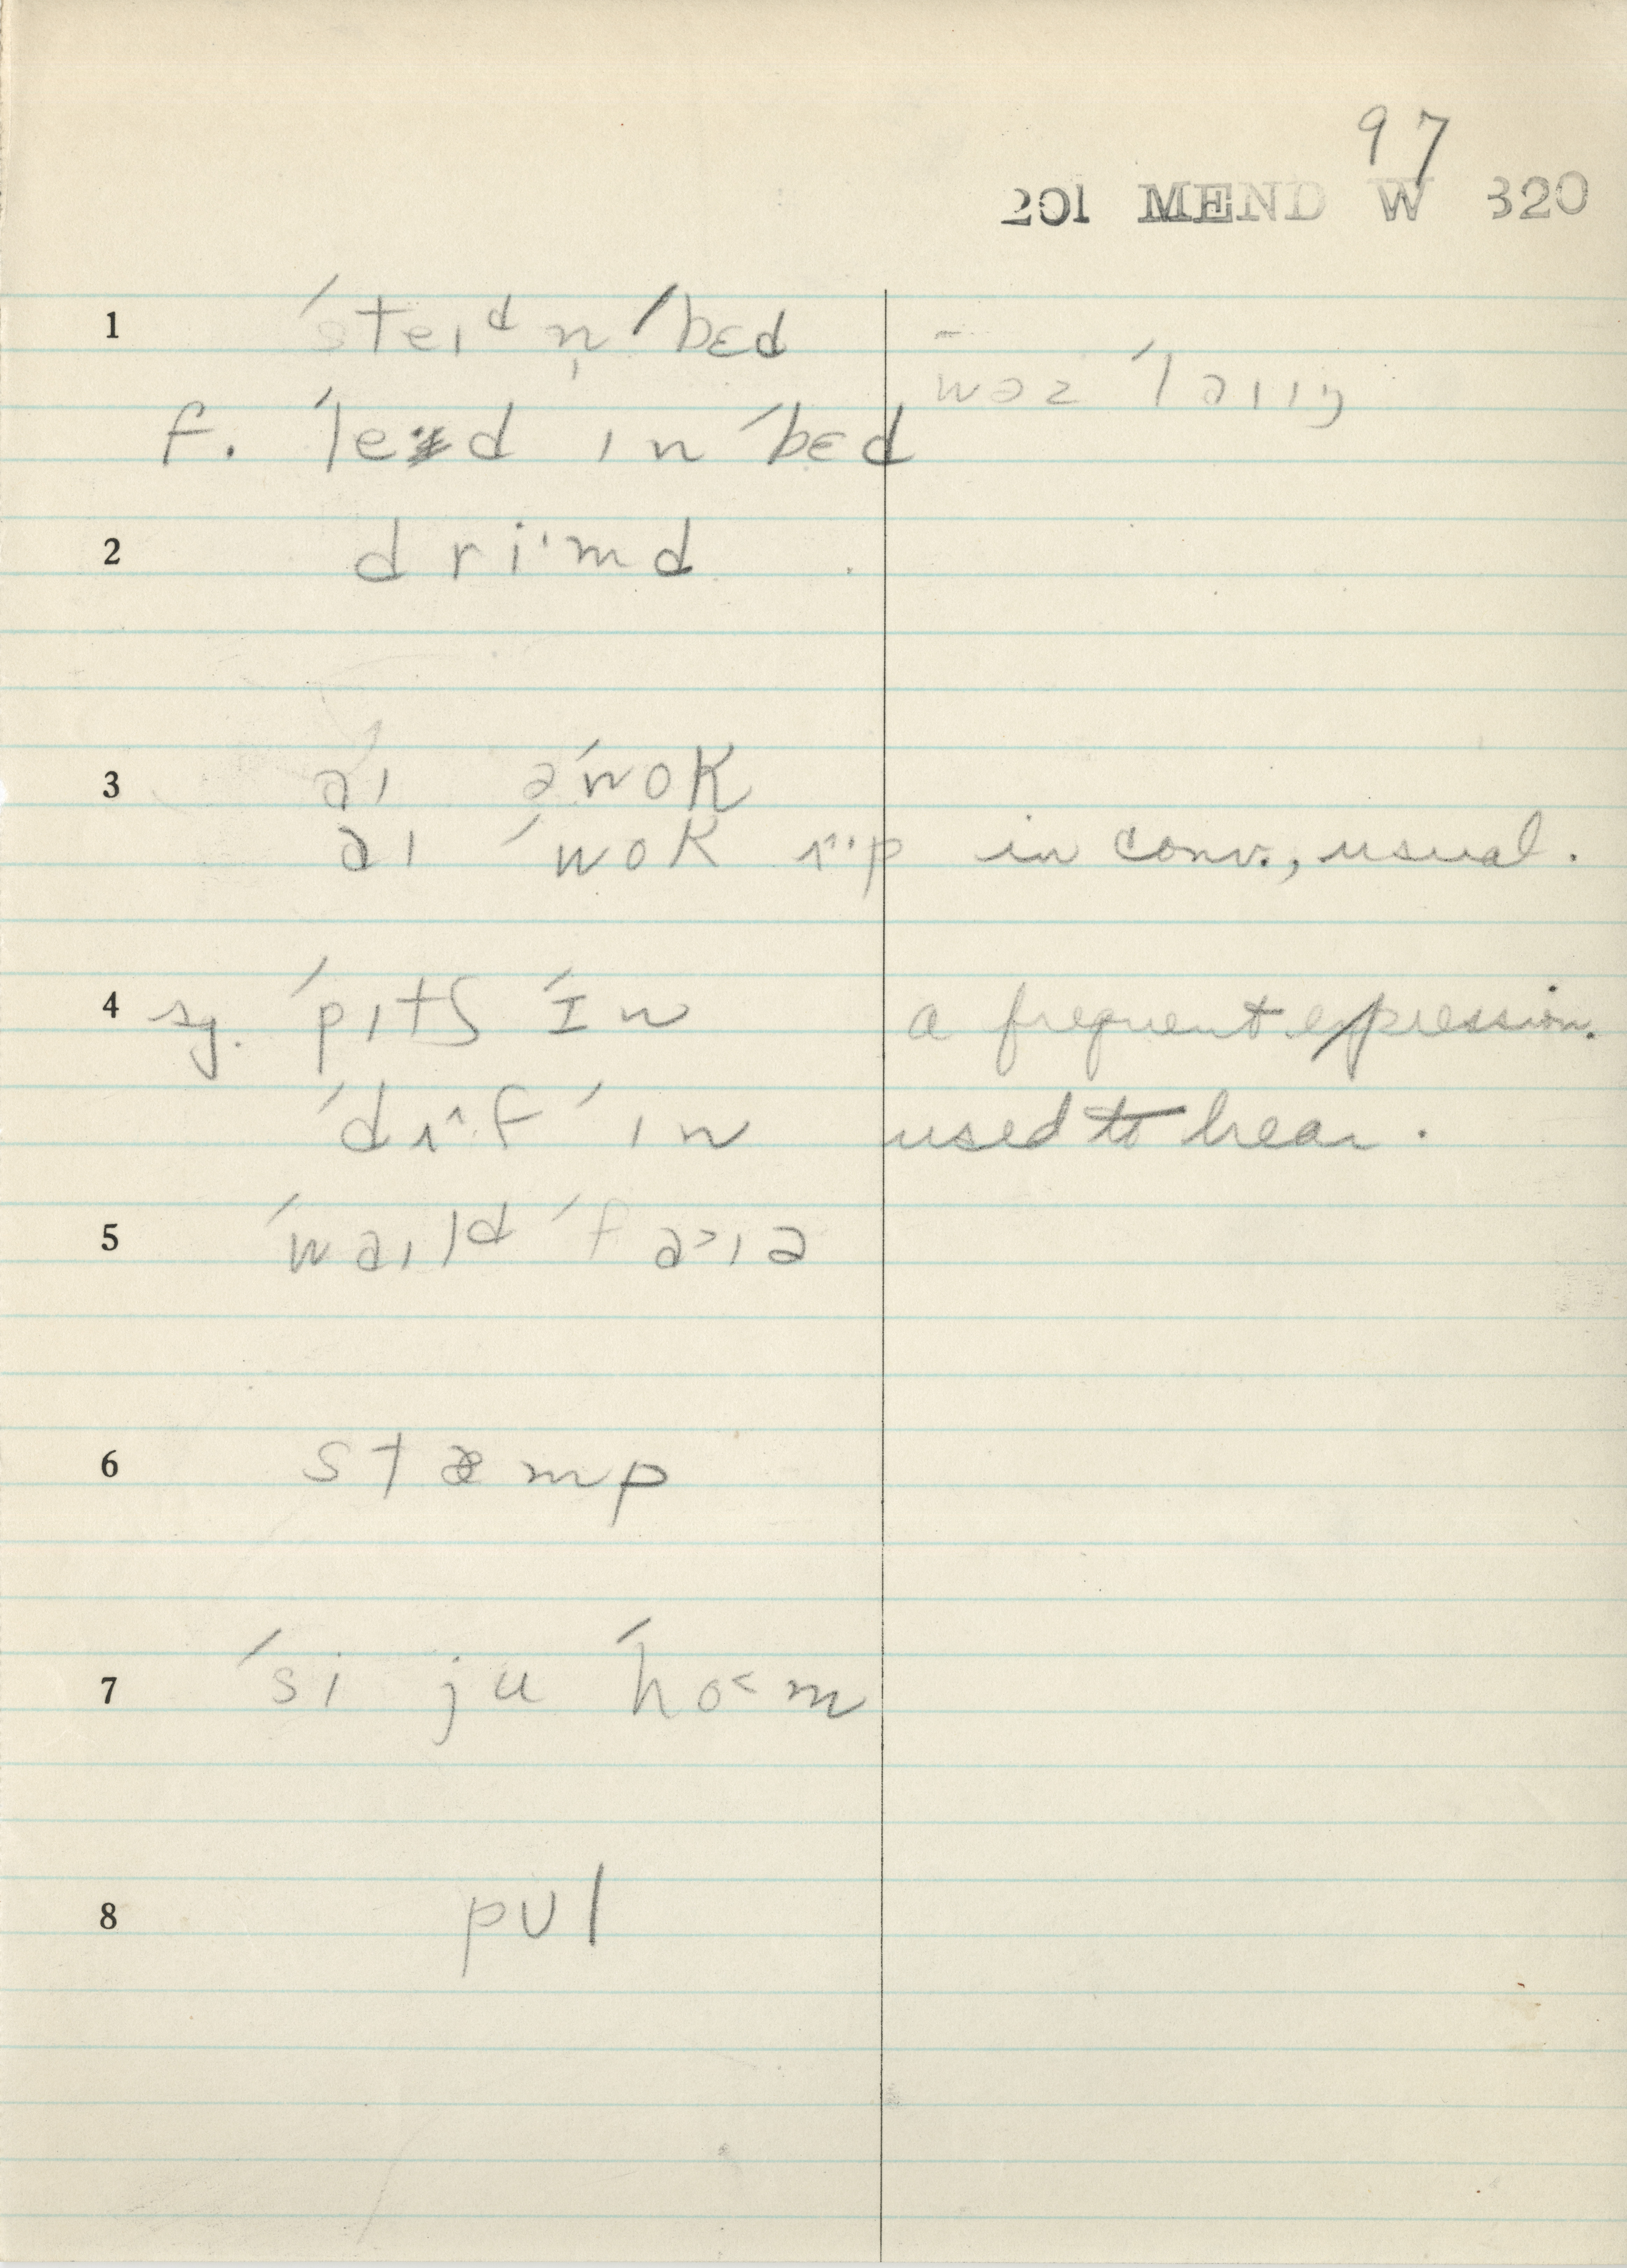 97
201 MEND W 320
1 ˈsteɪᵈ n̩ ˈbɛd
– wəz ˈlaɪɪŋ
f. ˈled ɪn ˈbɛd
2 dri·md
3 aɪ əˈwok
aɪ ˈwok ʌ·p in conv., usual.
4 sg. ˈpɪtʃ ˈɪn a frequent expression.
ˈdʌ^f ˈɪn used to hear.
5 ˈwaɪlᵈ ˈfa>ɪə
6 stæmp
7 ˈsi ju ˈho<m
8 pʊl